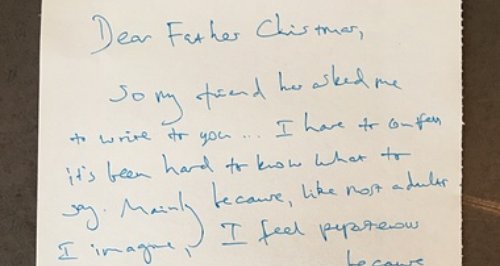 Dear Father Christmas,
So my friend has asked me
to write to you... I have to confess
it's been hard to know what to
say. Mainly because, like most adults
I imagine, I feel
because